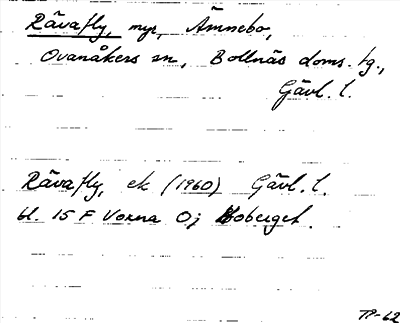 Rävafly, myr, Ämnebo,
Ovanåkers sn, Bollnäs doms. tg.,
Gävl. l.
Rävafly, ek (1960) Gävl. l.
bl. 15 F Voxna 0j Hoberget.
TP-62